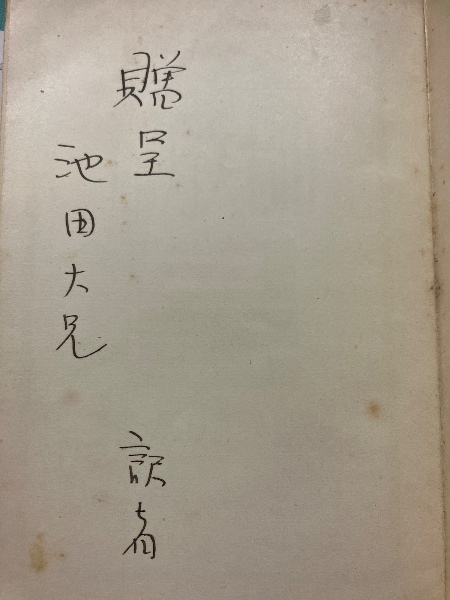 贈呈
訳者
池田大兄